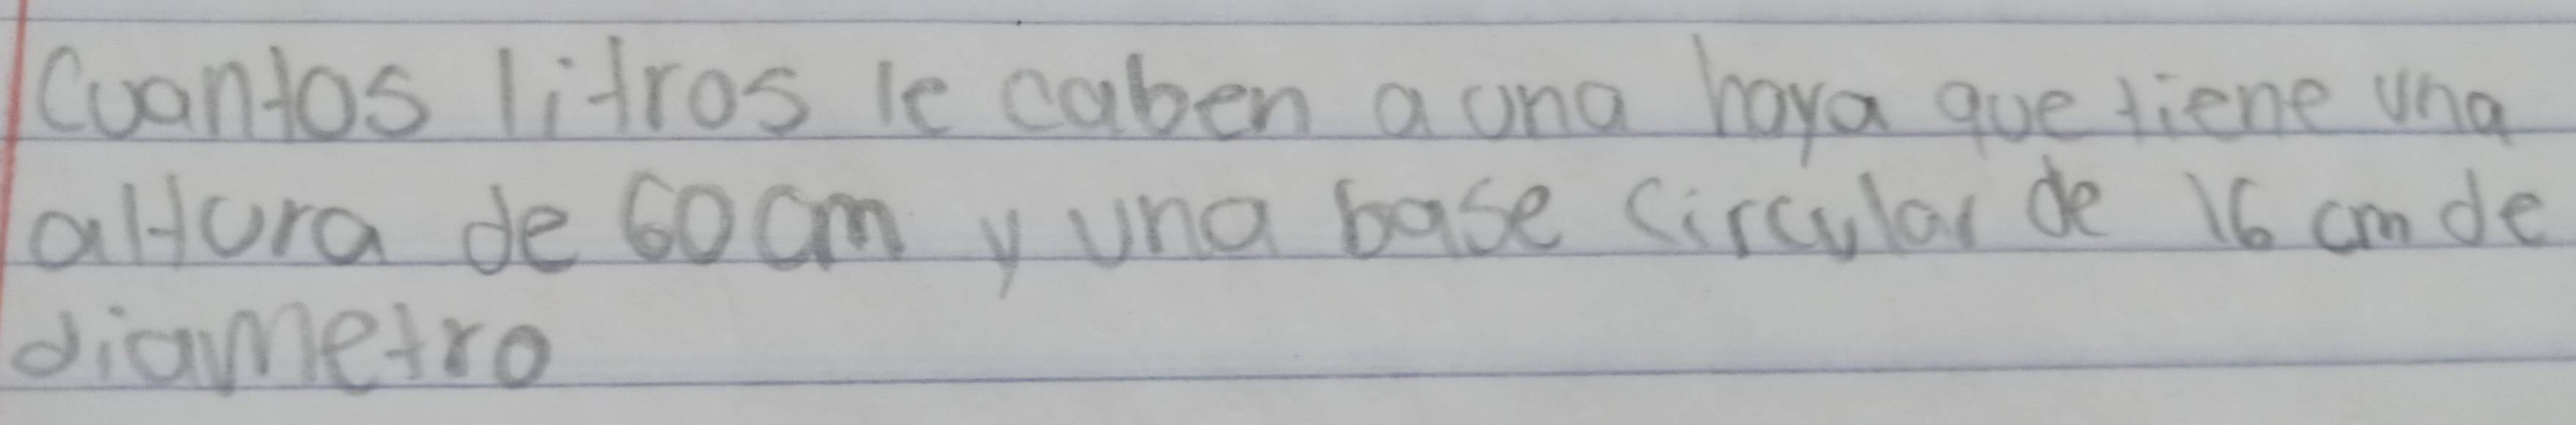 Cuantos litros le caben a una hoya que tiene una
altura de 60 cm y una base circular de 16 cm de
diametro